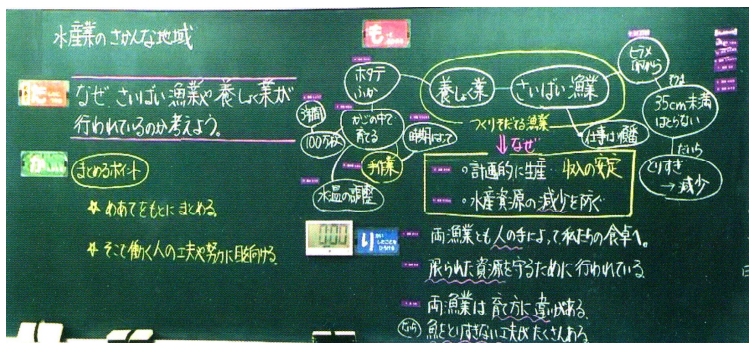 水産業のさかんな地域
なぜ さいばい漁業や養しょく業が
行われているのか考えよう。
まとめるポイント
☆ めあてをもとにまとめる
☆ そこで働く人の工夫や努力に目を向ける
も
ホタテ
ふか
養しょく業
さいばい漁業
ヒラメ
35cm未満
はとらない
だから
とりすぎ
→減少
つくりそだてる漁業
なぜ
3年間
100万枚
かごの中で
育てる
手作業
水温の調整
・計画的に生産 収入の安定
・水産資源の減少を防ぐ
0:00
り
両漁業とも人の手によって私たちの食卓へ。
限られた資源を守るために行われている
両漁業は育て方に違いがある
だから 魚をとりすぎない工夫がたくさんある